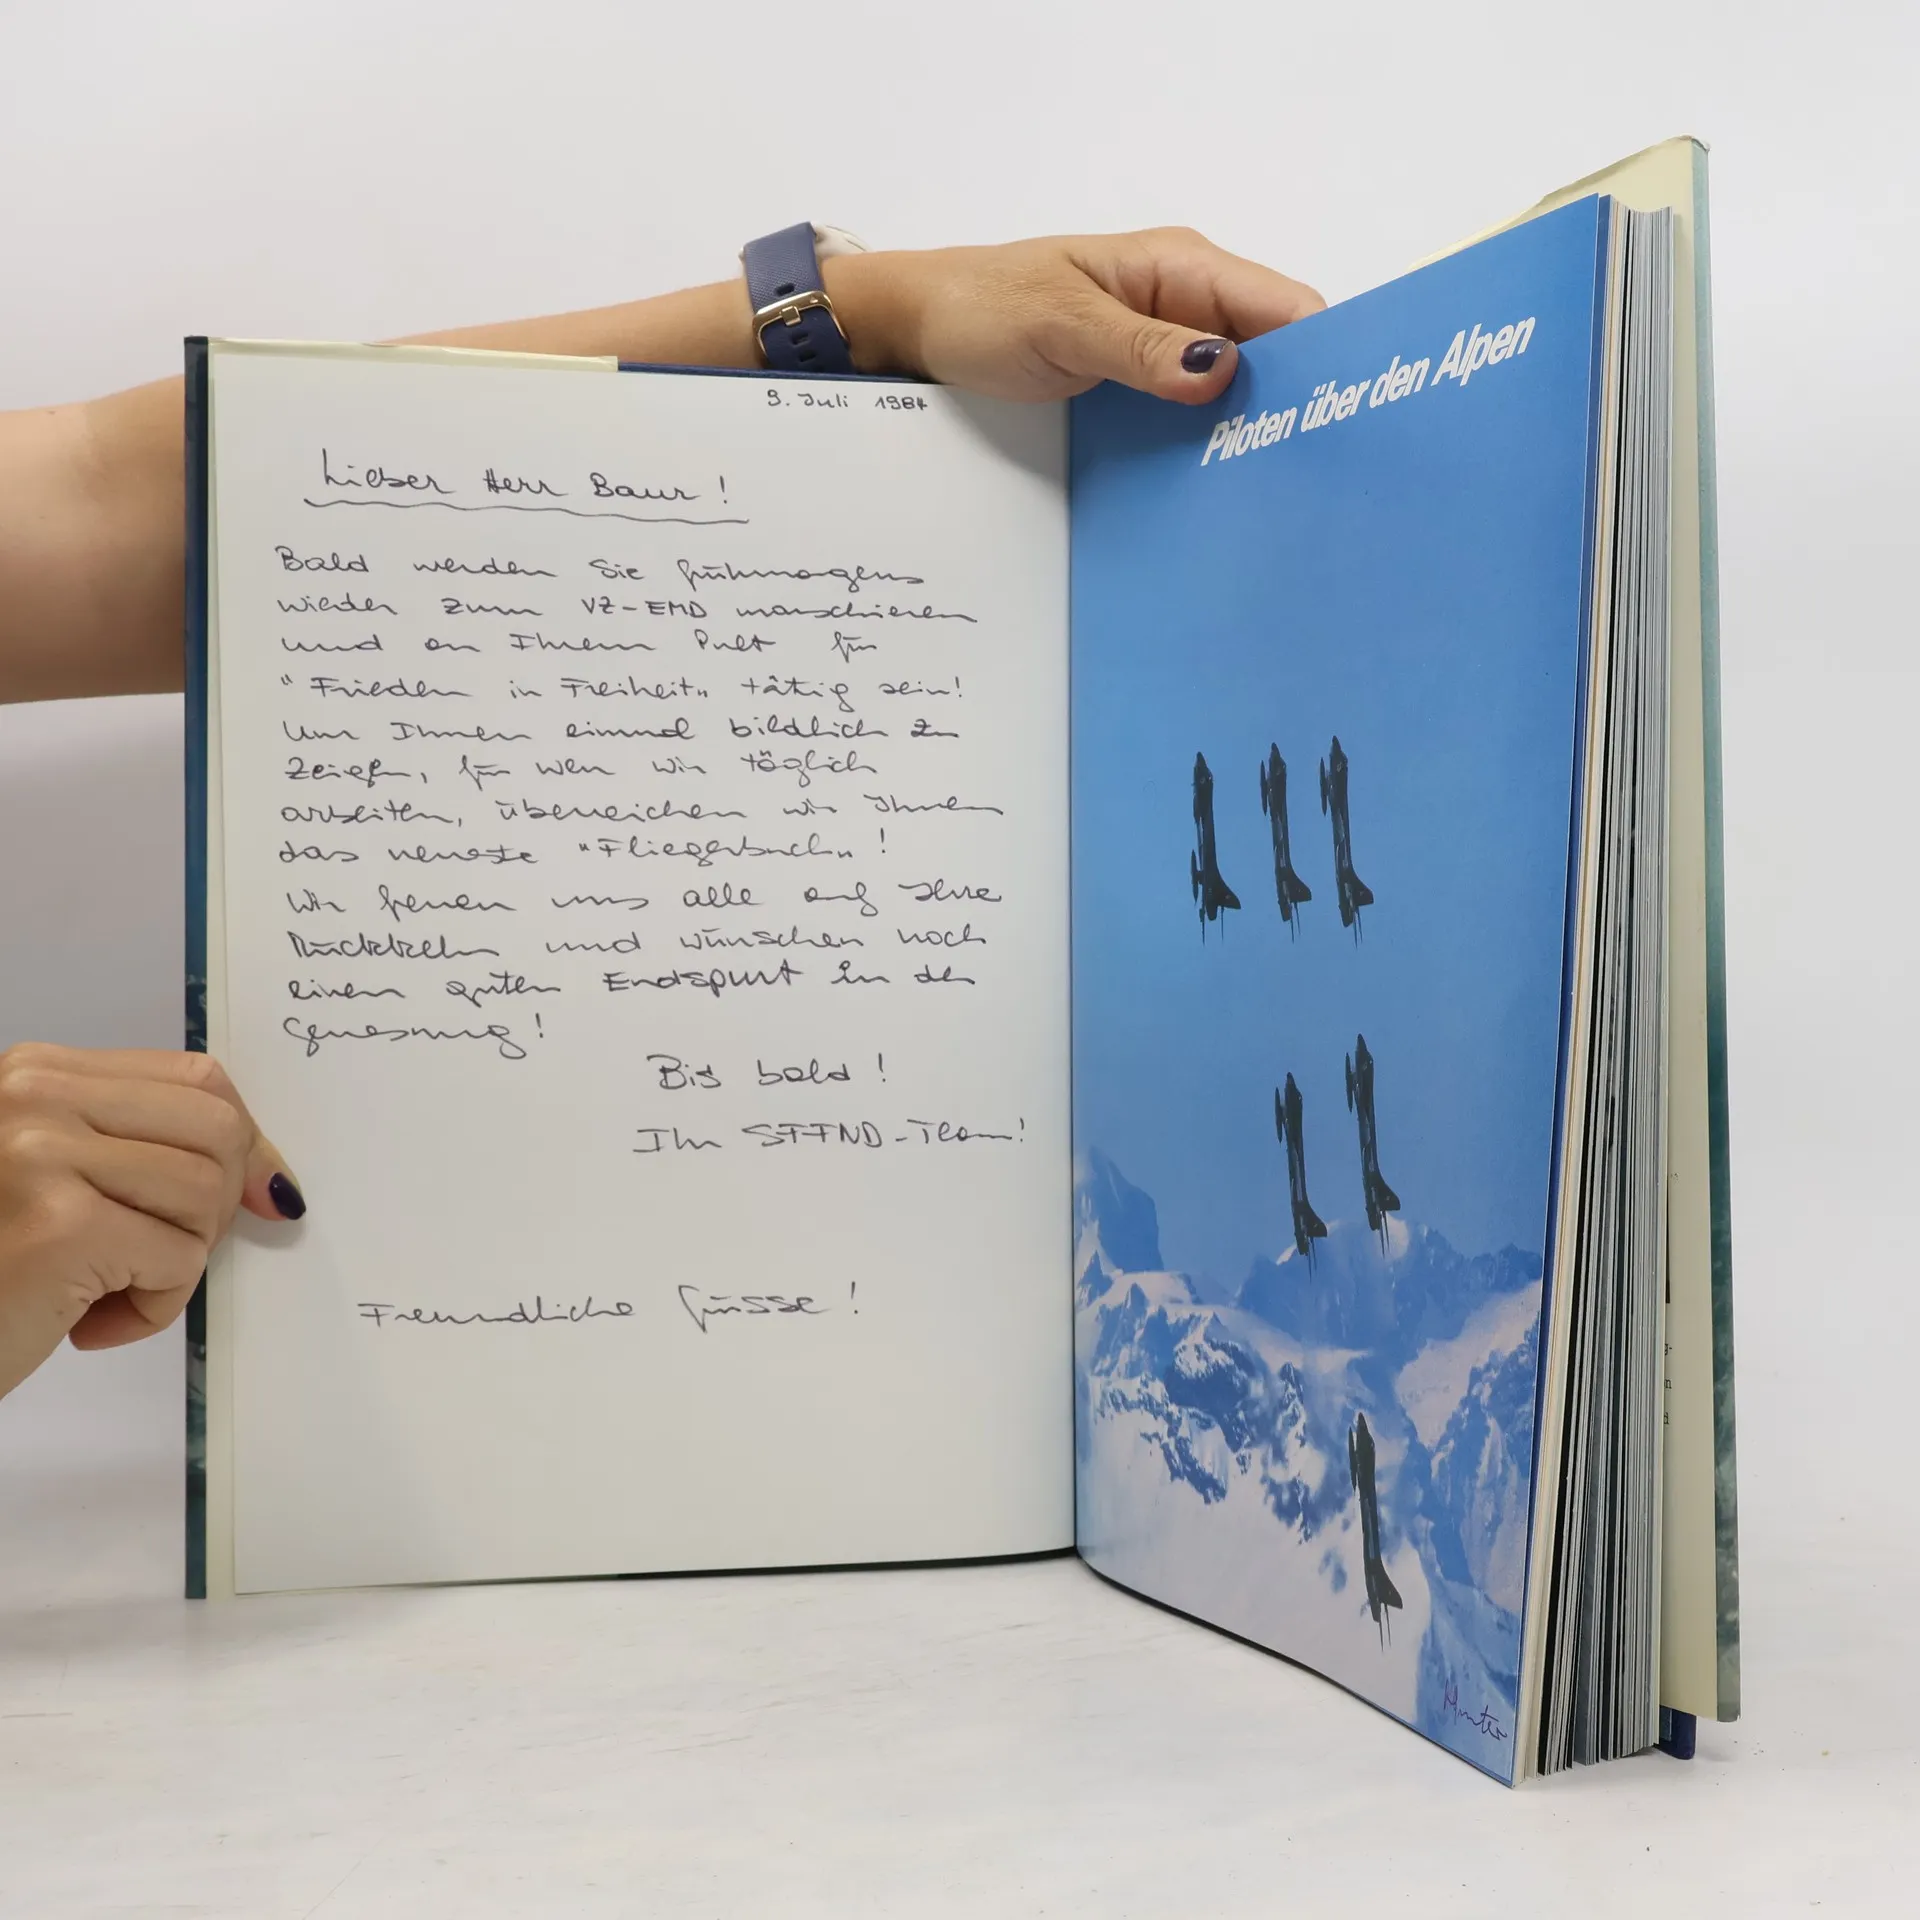 9. Juli 1984
Lieber Herr Baur !
Bald werden Sie frühmorgens
wieder zum VZ-EMD marschieren
und an Ihrem Pult für
"Frieden in Freiheit" tätig sein!
Um Ihnen einmal bildlich zu
zeigen, für wen wir täglich
arbeiten, überreichen wir Ihnen
das neueste "Fliegerbuch" !
Wir freuen uns alle auf Ihre
Rückkehr und wünschen noch
einen guten Endspurt in der
Genesung !
Bis bald !
Ihr SFFND-Team!
Freundliche Grüsse !
Piloten über den Alpen